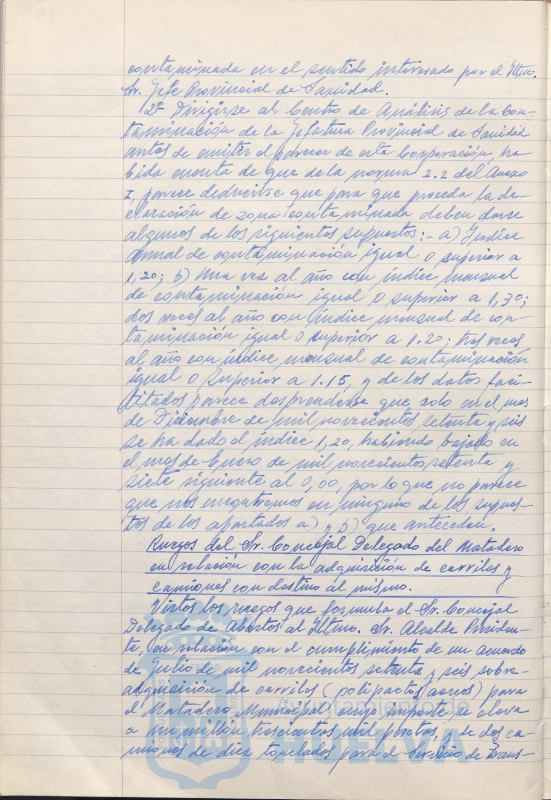 contaminada en el sentido interesado por el Iltmo.
Sr. Jefe Provincial de Sanidad.
2º Dirigirse al Centro de Análisis de la Con-
taminación de la Jefatura Provincial de Sanidad
antes de emitir el parecer de esta Corporación, ha-
bida cuenta de que de la norma 2.2 del Anexo
I, parece deducirse que para que proceda la de-
claración de zona contaminada deben darse
algunos de los siguientes supuestos:- a) Indice
Anual de contaminación igual o superior a
1,20; b) Una vez al año con índice mensual
de contaminación igual o superior a 1,30;
dos veces al año con índice mensual de con-
taminación igual o superior a 1.20; tres veces
al año con índice mensual de contaminación
igual o superior a 1.15, y de los datos faci-
litados parece desprenderse que solo en el mes
de Diciembre de mil novecientos setenta y seis
se ha dado el índice 1,20, habiendo bajado en
el mes de Enero de mil novecientos setenta y
siete siguiente al 0,00, por lo que no parece
que nos encontremos en ninguno de los supues-
tos de los apartados a) y b) que anteceden.
Ruegos del Sr. Concejal Delegado del Matadero
en relación con la adquisición de carriles y
camiones con destino al mismo.
Vistos los ruegos que formula el Sr. Concejal
Delegado de Abastos al Iltmo. Sr. Alcalde Presiden-
te, en relación con el cumplimiento de un acuerdo
de Julio de mil novecientos setenta y seis sobre
adquisición de carriles (polipastos aereos) para
el Matadero Municipal cuyo importe se eleva
a un millón trescientas mil pesetas, y de dos ca-
miones de diez toneladas para el Servicio de Trans-
Ayuntamiento de
HUELVA